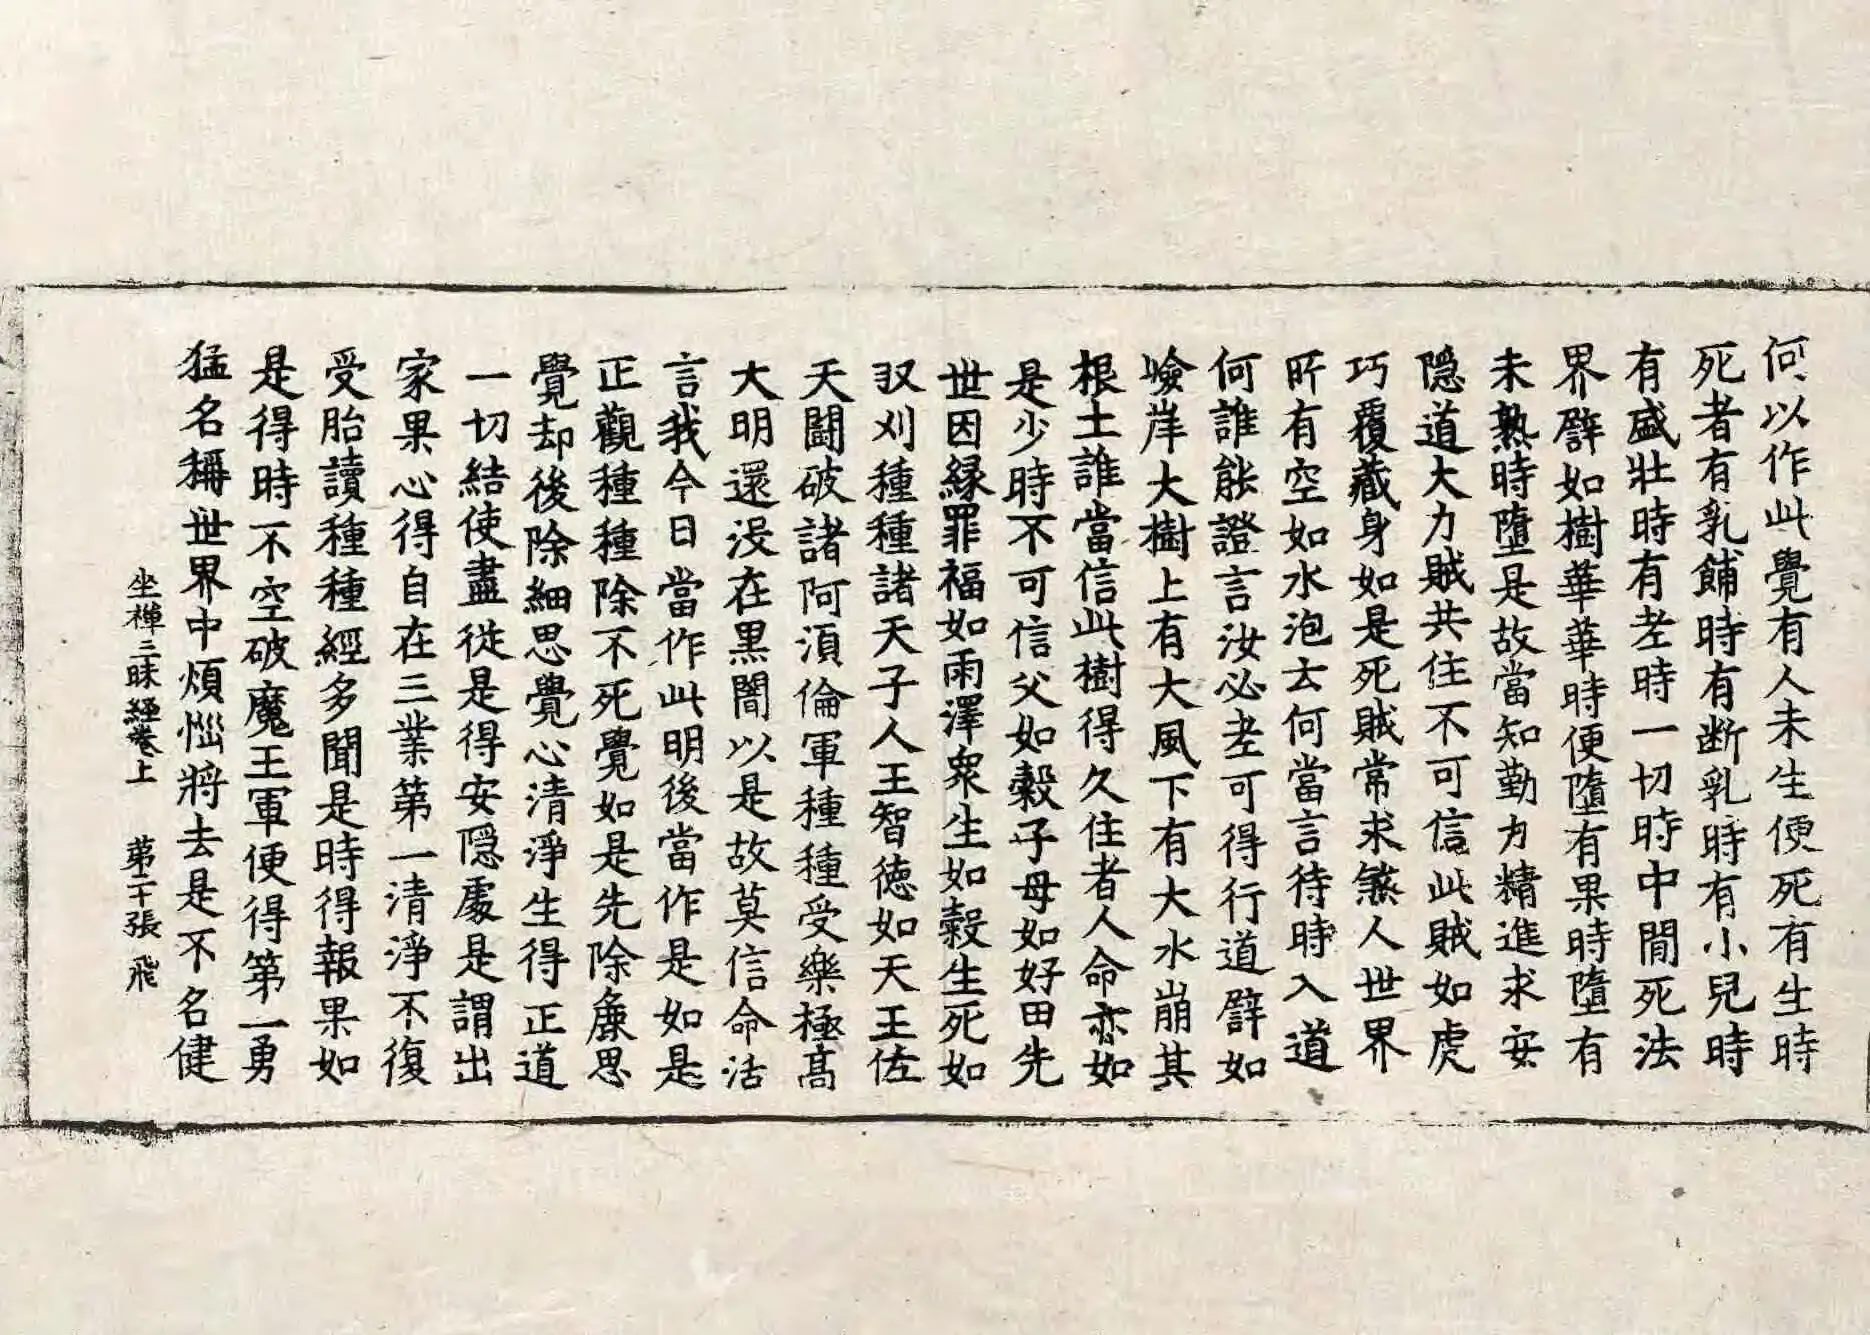 何以作此覺有人未生便死有生時
死者有乳餔時有断乳時有小兒時
有盛壯時有老時一切時中間死法
界譬如樹華華時便墮有果時墮有
未熟時墮是故當知勤力精進求安
隠道大力賊共住不可信此賊如虎
巧覆藏身如是死賊常求煞人世界
所有空如水泡去何當言待時入道
何誰能證言汝必老可得行道譬如
嶮岸大樹上有大風下有大水崩其
根土誰當信此樹得久住者人命亦如
是少時不可信父如穀子母如好田先
世因縁罪福如雨澤衆生如穀生死如
収刈種種諸天子人王智徳如天王佐
天鬪破諸阿湏倫軍種種受樂極髙
大明還没在黒闇以是故莫信命活
言我今日當作此明後當作是如是
正觀種種除不死覺如是先除麁思
覺却後除細思覺心清淨生得正道
一切結使盡従是得安隠處是謂出
家果心得自在三業第一清淨不復
受胎讀種種經多聞是時得報果如
是得時不空破魔王軍便得第一勇
猛名稱世界中煩惱將去是不名健
坐禅三昧経卷上 苐二十張 飛